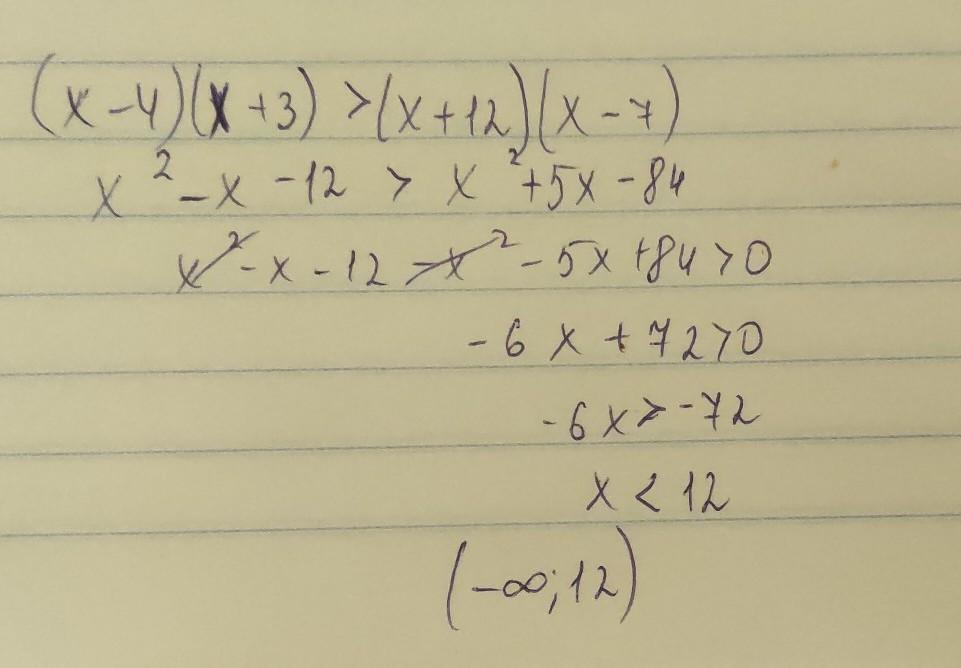 (x-4)(x+3)>(x+12)(x-7)
x²-x-12 > x²+5x-84
x²-x-12-x²-5x+84>0
-6x+72>0
-6x>-72
x<12
(-∞;12)